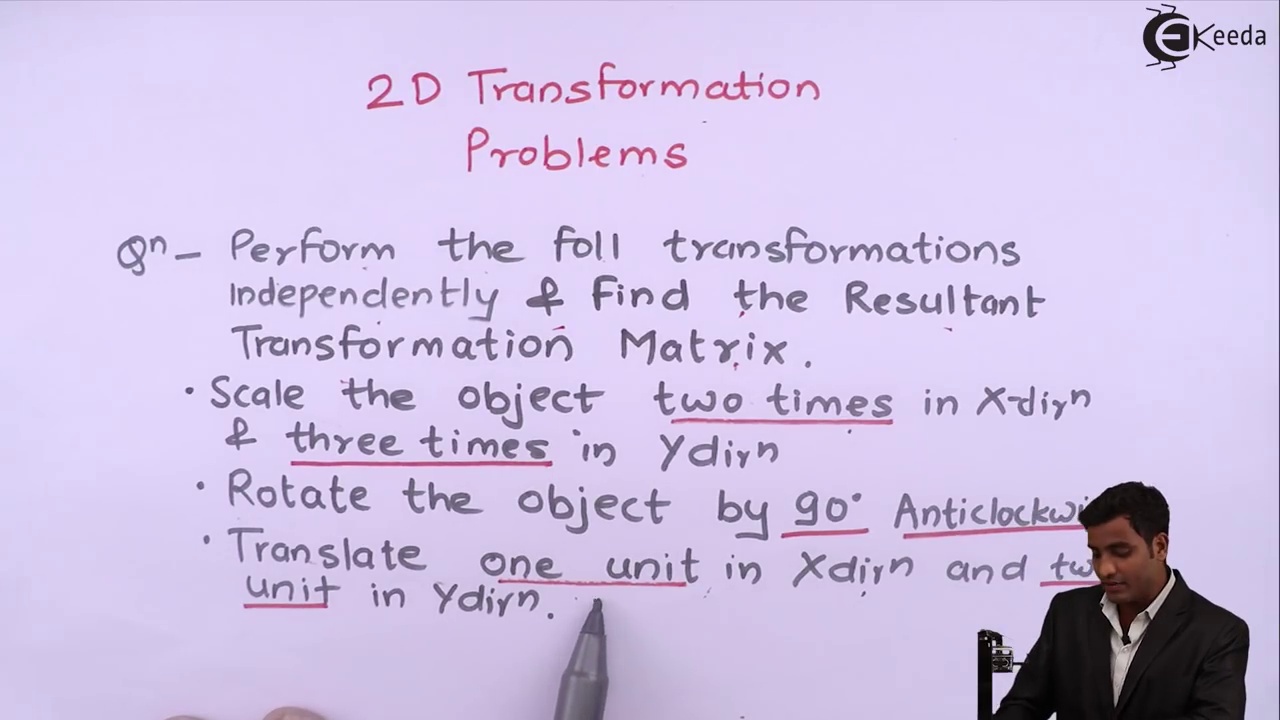 EKeeda
2D Transformation
Problems
Qn - Perform the foll transformations
Independently & find the Resultant
Transformation Matrix.
• Scale the object two times in X-dirn
& three times in Ydirn
• Rotate the object by 90°
• Translate one unit in Xdirn and
unit in Ydirn.